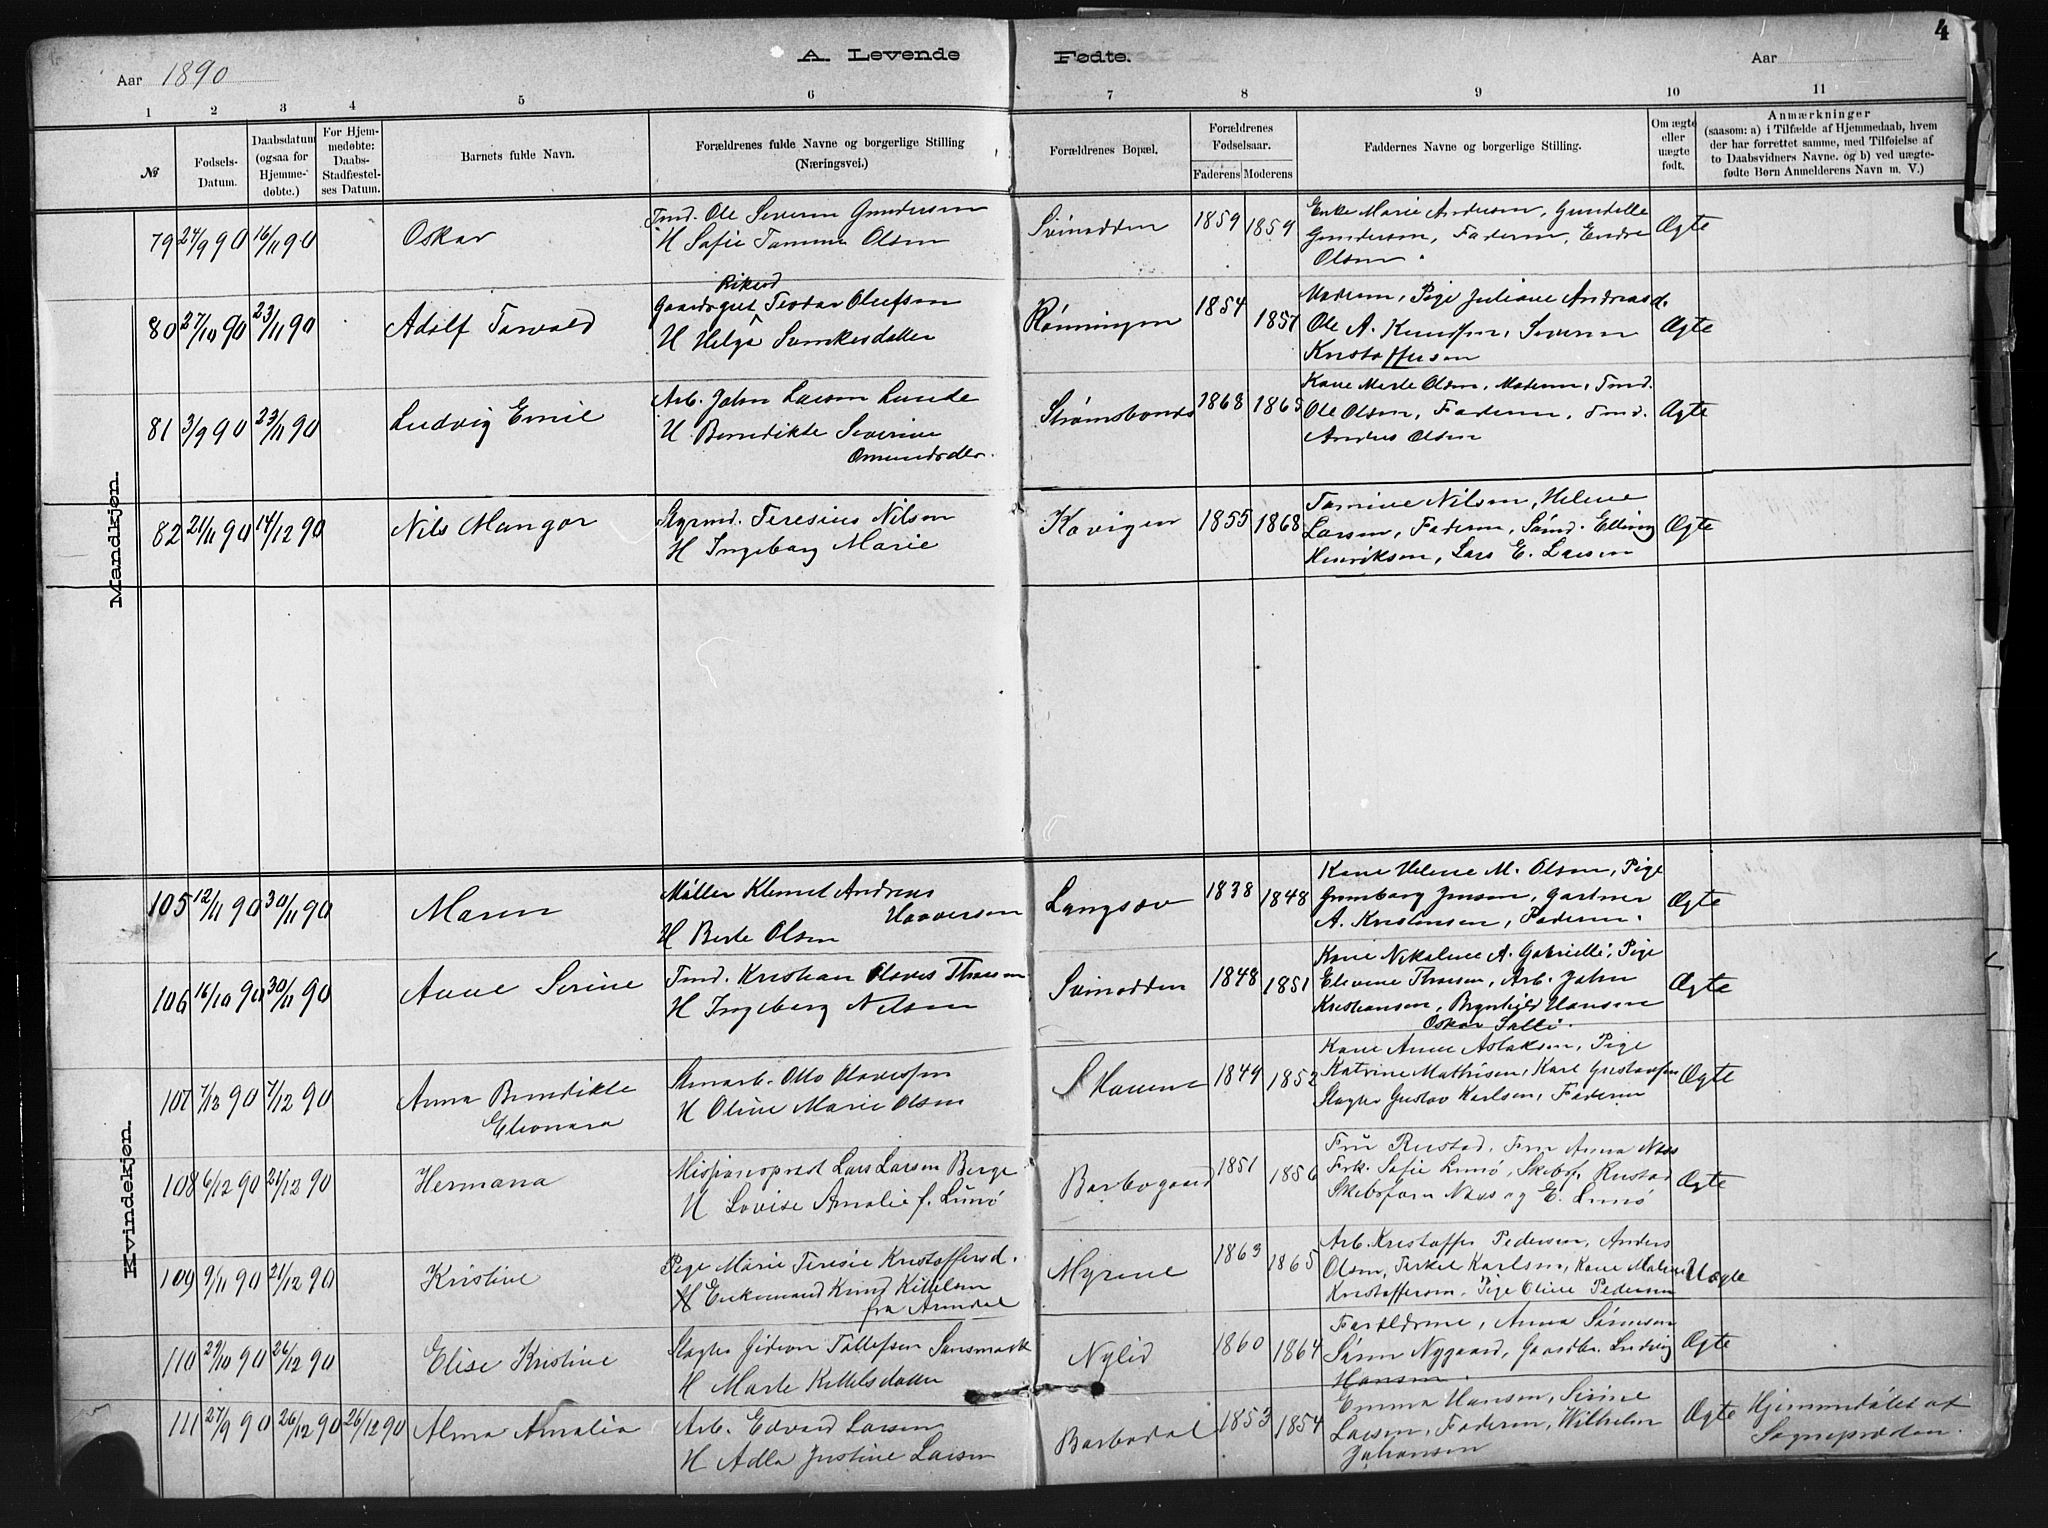 4
Aar 1890
A. Levende Fødte.
Aar
1 2 3 4 5 6 7 8 9 10 11
№
Fødsels-Datum.
Daabsdatum (ogsaa for Hjemme-døbte.)
For Hjem-medøbte: Daabs-Stadfæstel-ses Datum.
Barnets fulde Navn.
Forældrenes fulde Navne og borgerlige Stilling (Næringsvei.)
Forældrenes Bopæl.
Forældrenes Fødselsaar.
Faderens Moderens
Faddernes Navne og borgerlige Stilling.
Om ægte eller uægte født.
Anmærkninger
(saasom: a) i Tilfælde af Hjemmedaab, hvem der har forrettet samme, med Tilføielse af to Daabsvidners Navne, og b) ved uægte-fødte Børn Anmelderens Navn m. V.)
Mandkjøn.
79 24/9 90 16/11 90 Oskar
Tmd. Ole Severin Gundersen
H Sofie Tomine Olsen
Svinodden 1859 1859
Enke Marie Andersen, Gundelle
Gundersen, Faderen, Endre
Olsen.
Ægte
80 27/10 90 23/11 90 Adolf Torvald
Rikard
Gaardbruger Teodor Olufsen
H Helga
Rønningen 1854 1857
Moderen, Pige Juliane Andreasd.
Ole A. Knudsen, Severin
Kristoffersen
Ægte
81 3/9 90 23/11 90 Ludvig Emil
Arb. John Larsen Lunde
H Benedikte Severine
Omundsdtr.
Strømsbunds 1868 1865
Kone Marte Olsen, Moderen, Tmd.
Ole Olsen, Faderen, Tmd.
Anders Olsen
Ægte
82 21/11 90 14/12 90 Nils Mangor
Styrmd. Teresius Nilsen
H Ingeborg Marie
Kovigen 1855 1868
Tomine Nilsen, Helene
Larsen, Faderen, Sømd. Elling
Henriksen, Lars E. Larsen
Ægte
Kvindekjøn.
105 12/11 90 30/11 90 Maren
Møller Klemet Andreas
Haaversen
H Berte Olsen
Langsæv 1838 1848
Kone Helene M. Olsen, Pige
Gunborg Jensen, Gartner
A. Kristensen, Faderen.
Ægte
106 16/10 90 30/11 90 Anne Serine
Tmd. Kristian Olaves Thorsen
H Ingeborg Nilsen
Svinodden 1848 1851
Kone Nikoline A. Gabrielli, Pige
Elevine Thorsen, Arb. John
Kristiansen, Brynhild Hansen
Oskar Salli.
Ægte
107 7/12 90 7/12 90 Anna Benedikte
Eleonara
Stenarb. Otto Olavessen
H Oline Marie Olsen
Skarene 1849 1852
Kone Anne Aslaksen, Pige
Katrine Mathisen, Karl Gustavsen
Slagter Gustav Karlsen, Faderen
Ægte
108 6/12 90 21/12 90 Hermana
Missionsprest Lars Larsen Berge
H Lovise Amalie f. Lunø
Barbogaard 1851 1856
Fru Rustad. Fru Anna Næs
Frk. Sofie Lunø, Skibsf. Rustad
Skibsform Næs og E. Lunø
Ægte
109 9/11 90 21/12 90 Kristine
Pige Marie Teresie Kristoffersd.
H Enkemand Knud Kittelsen
fra Arendal
Myrene 1863 1865
Arb. Kristoffer Pedersen, Anders
Olsen, Terkel Karlsen, Kone Malene
Kristoffersen. Pige Oline Pedersen
Uægte
110 29/10 90 26/12 90 Elise Kristine
Slagter Gideon Tollefsen Sansmark
H Marte Kittelsdatter
Nylid 1860 1864
Forældrene, Anna Sørensen
Søren Nygaard, Gaardbr. Ludvig
Hansen.
Ægte
111 27/9 90 26/12 90 26/12 90 Alma Amalia
Arb. Edvard Larsen
H Adla Justine Larsen
Barbodal 1853 1854
Emma Hansen, Serine
Larsen, Faderen, Wilhelm
Johansen
Ægte
Hjemmedøbt af
Sognepresten.